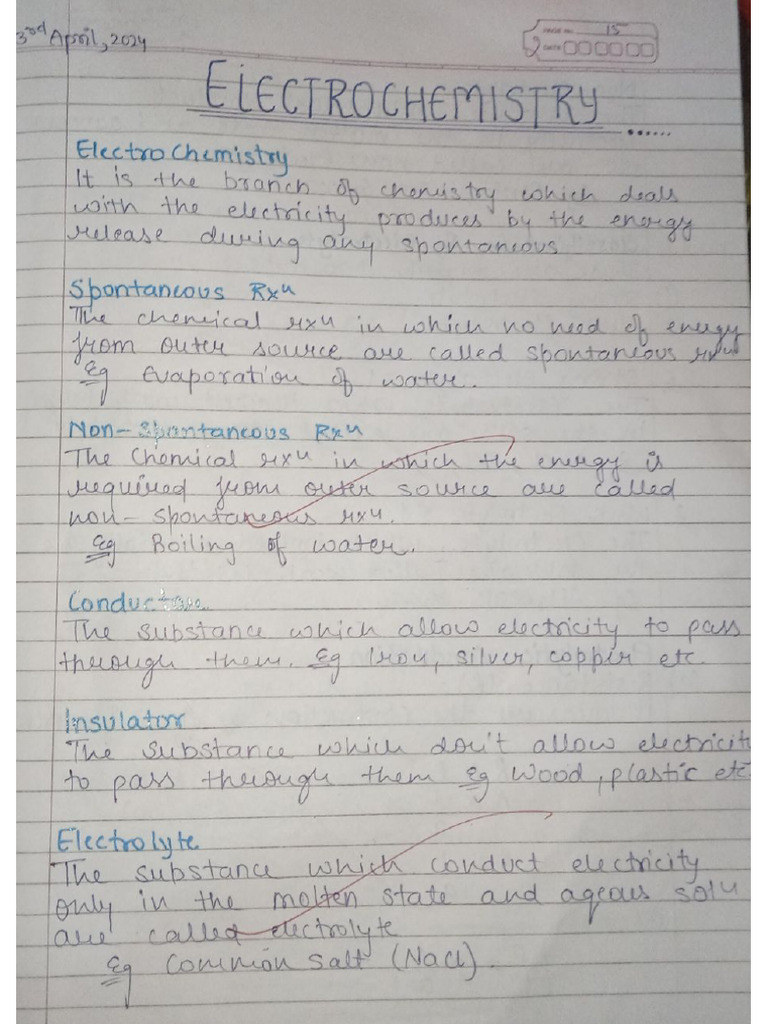 3rd April, 2024
PAGE No. 15
DATE
ELECTROCHEMISTRY
Electro Chemistry
It is the branch of chemistry which deals
with the electricity produces by the energy
release during any spontaneous
Spontaneous Rxn
The chemical rxn in which no need of energy
from outer source are called spontaneous rxn
Eg Evaporation of water.
Non-Spontaneous Rxn
The Chemical rxn in which the energy is
required from outer source are called
non-spontaneous rxn.
Eg Boiling of water.
Conductor
The substance which allow electricity to pass
through them. Eg Iron, silver, coppir etc.
Insulator
The substance which don't allow electricit
to pass through them Eg Wood, plastic etc
Electrolyte
The substance which conduct electricity
only in the molten state and aqeous soln
are called electrolyte
Eg Common Salt (NaCl).